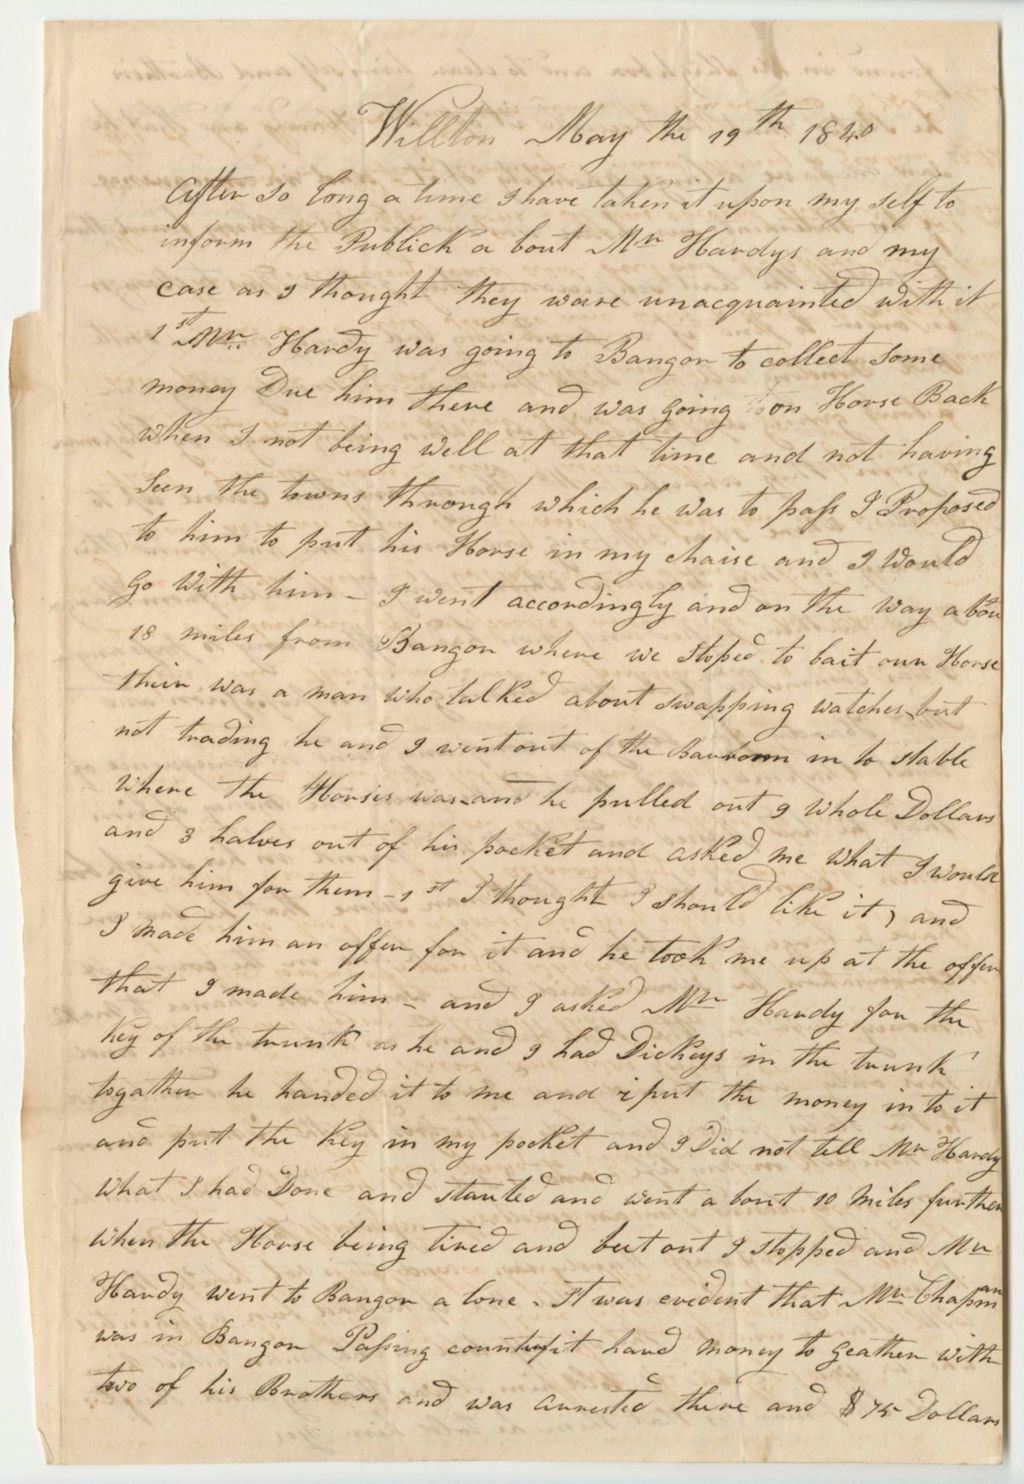 Willton May the 19th 1840
After so long a time I have taken it upon my self to
inform the Publick a bout Mr Hardys and my
case as I thought they ware unacquainted with it
1st Mr Hardy was going to Bangor to collect some
money Due him there and was going on Horse Back
when I not being well at that time and not having
seen the towns through which he was to pass I Proposed
to him to put his Horse in my chaise and I would
go with him – I went accordingly and on the way abou
18 miles from Bangor where we stoped to bait our Horse
their was a man who talked about swapping watches, but
not trading he and I went out of the Barroom in to stable
where the Horses was and he pulled out 9 whole Dollars
and 3 halves out of his pocket and asked me what I would
give him for them – 1st I thought I should like it, and
I made him an offer for it and he took me up at the offer
that I made him – and I asked Mr Hardy for the
key of the trunk as he and I had Dickeys in the trunk
togather he handed it to me and i put the money in to it
and put the key in my pocket and I Did not tell Mr Hardy
what I had Done and started and went a bout 10 miles further
when the Horse being tired and beet out I stopped and Mr
Hardy went to Bangor a lone. It was evident that Mr Chapman
was in Bangor Passing counterfit hard money to geather with
two of his Brothers and was arrested there and $75 Dollars